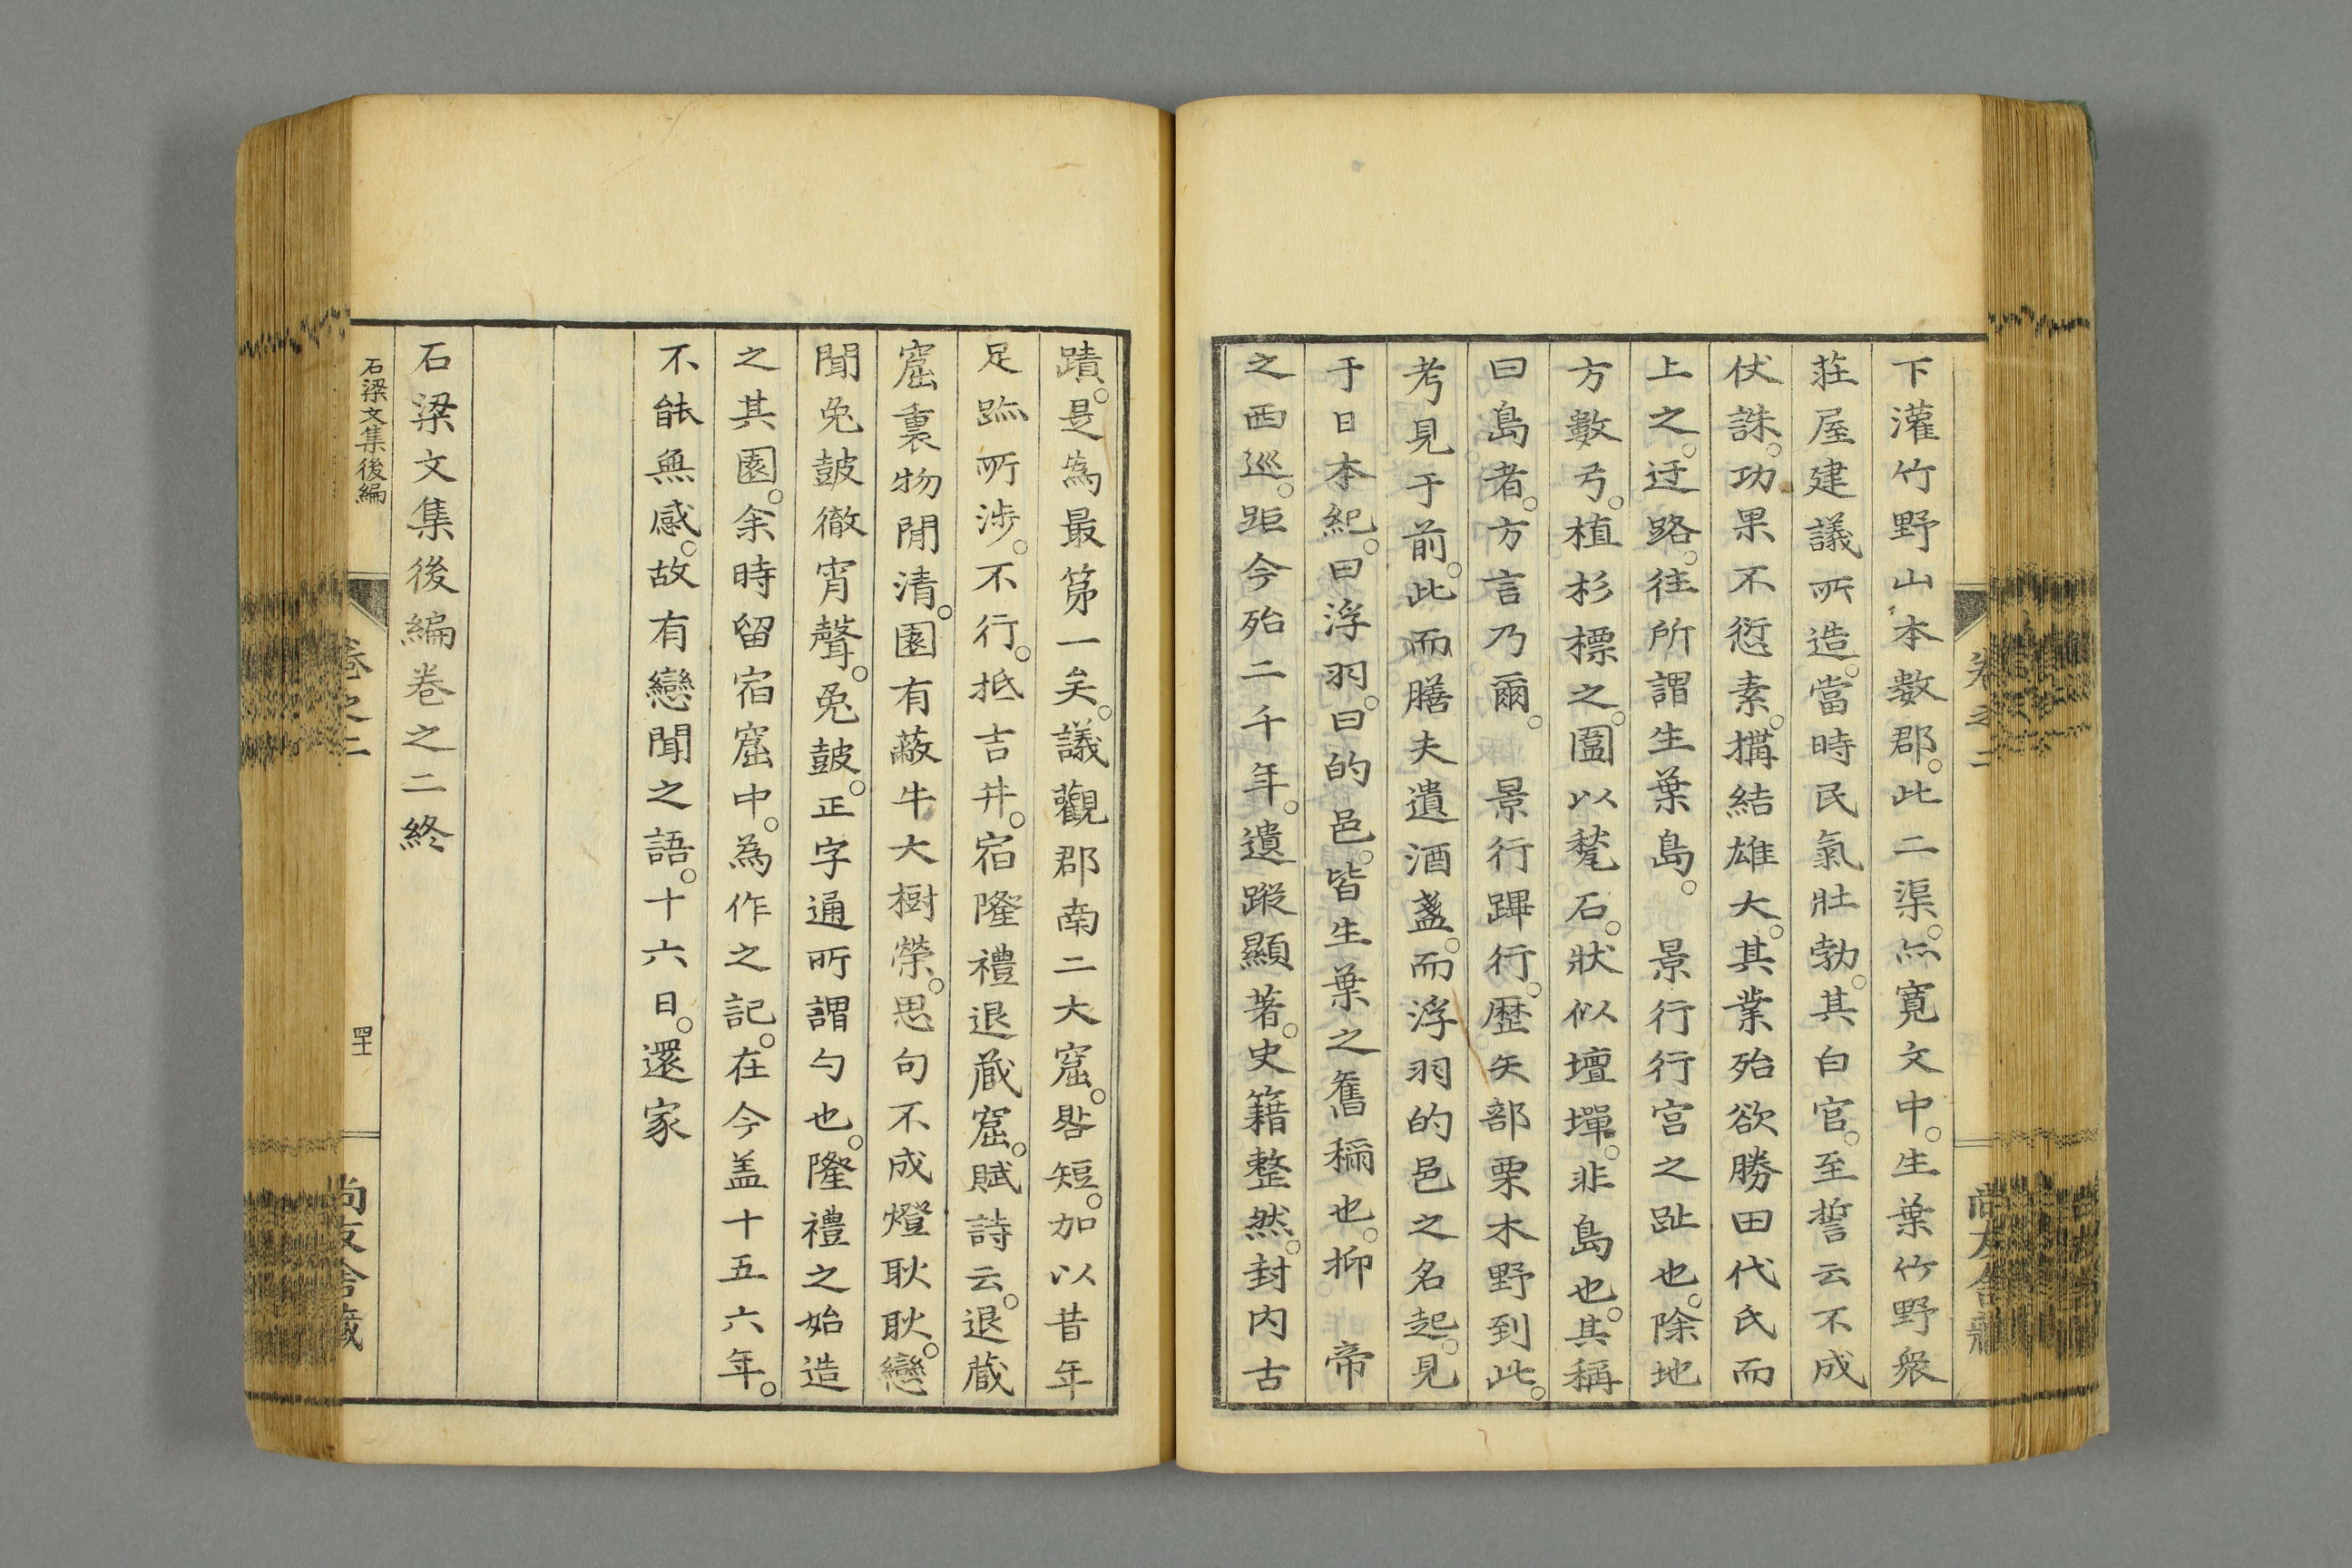 下灌竹野山本数郡。此二渠。亦寛文中。生葉竹野衆
莊屋建議所造。當時民氣壯勃。其白官。至誓云不成
伏誅。功果不愆素。搆結雄大。其業殆欲勝田代氏而
上之。迂路。往所謂生葉島。　景行行宮之趾也。除地
方數弓。植杉標之。圍以甃石。狀似壇墠。非島也。其稱
曰島者。方言乃爾。　景行蹕行。歴矢部栗木野到此。
考見于前。此而膳夫遺酒盞。而浮羽的邑之名起。見
于日本紀。曰浮羽。曰的邑。皆生葉之舊稱也。抑　帝
之西巡。距今殆二千年。遺蹤顯著。史籍整然。封内古
蹟。是為最第一矣。議觀郡南二大窟。晷短。加以昔年
足跡所渉。不行。抵吉井。宿隆禮退藏窟。賦詩云。退蔵
窟裏物閒清。園有蔽牛大樹榮。思句不成燈耿耿。戀
聞兔皷徹宵聲。兔皷。正字通所謂勻也。隆禮之始造
之其園。余時留宿窟中。為作之記。在今盖十五六年。
不能無感。故有戀聞之語。十六日。還家
石梁文集後編卷之二終
石梁文集後編
卷之二
尚友舎藏